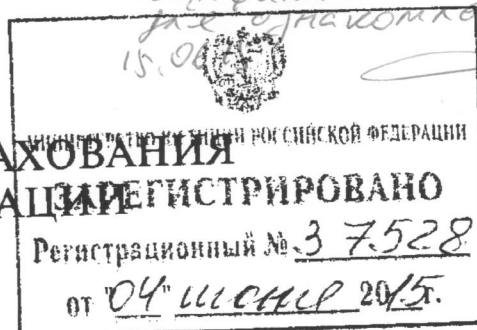 для ознакомле
15.06
МИНИСТЕРСТВО ЮСТИЦИИ РОССИЙСКОЙ ФЕДЕРАЦИИ
АХОВАНИЯ
АЦИИ
ЗАРЕГИСТРИРОВАНО
Регистрационный № 37528
от "04" июня 2015г.